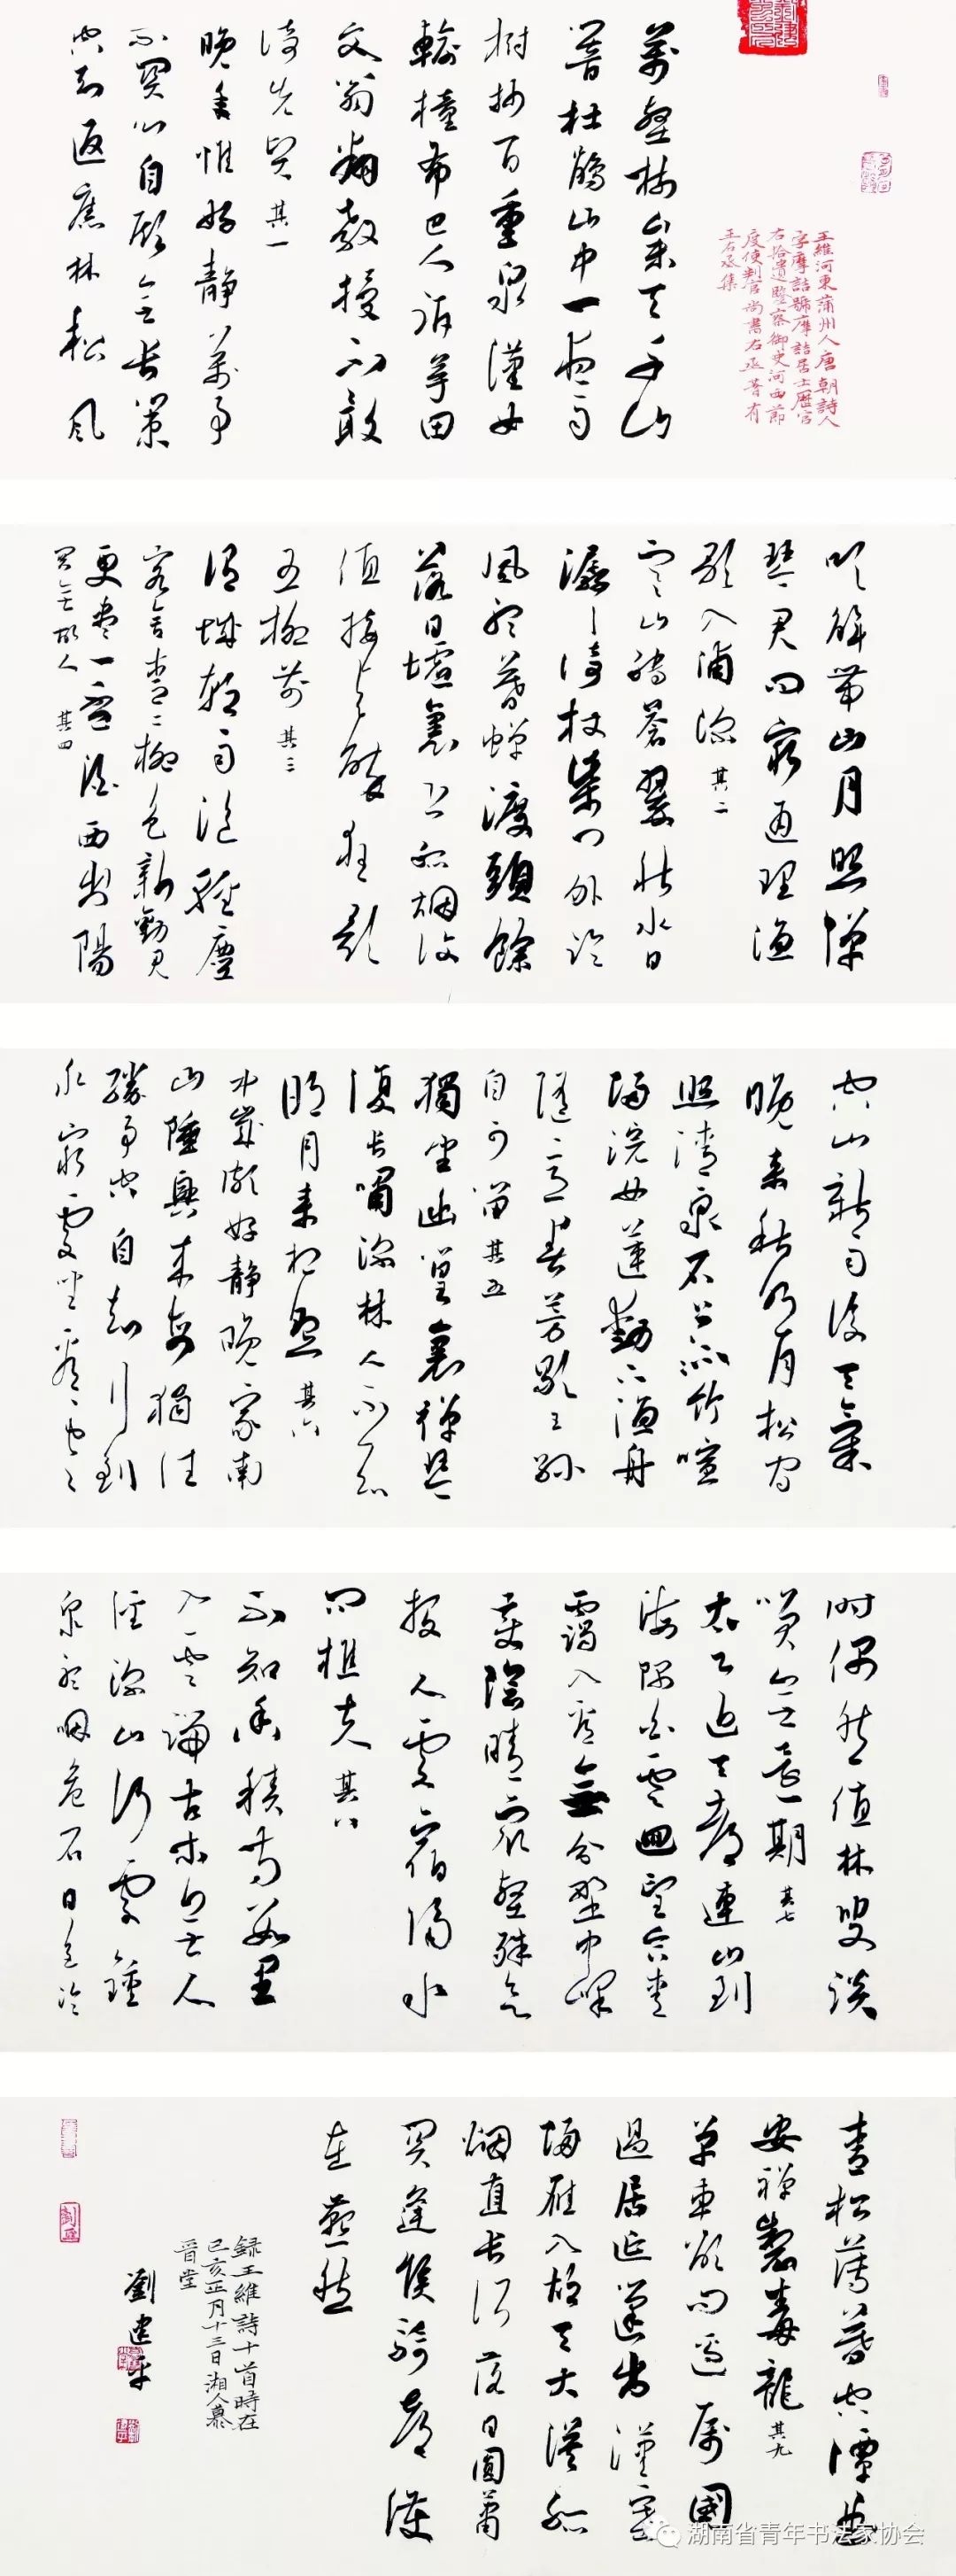 王維河東蒲州人唐朝詩人
字摩詰號摩詰居士歷官
右拾遺監察御史河西節
度使判官尚書右丞著有
王右丞集
萬壑樹參天千山
響杜鵑山中一夜雨
樹杪百重泉漢女
輸橦布巴人訟芋田
文翁翻教授不敢
倚先賢 其一
晚年惟好静萬事
不關心自顧無長策
空知返舊林松風
吹解帶山月照彈
琴君問窮通理漁
歌入浦深 其二
寒山轉蒼翠秋水日
潺湲倚杖柴門外臨
風聽暮蟬渡頭餘
落日墟裏上孤烟復
值接輿醉狂歌
五柳前 其三
渭城朝雨浥輕塵
客舍青青柳色新勸君
更盡一杯酒西出陽
關無故人 其四
空山新雨後天氣
晚來秋明月松間
照清泉石上流竹喧
歸浣女蓮動下漁舟
隨意春芳歇王孫
自可留 其五
獨坐幽篁裏彈琴
復長嘯深林人不知
明月來相照 其六
中歲頗好静晚家南
山陲興來每獨往
勝事空自知行到
水窮處坐看雲起
時偶然值林叟談
笑無還期 其七
太乙近天都連山到
海隅白雲迴望合青
靄入看無分野中峰
變陰晴衆壑殊欲
投人處宿隔水
問樵夫 其八
不知香積寺數里
入雲峰古木無人
徑深山何處鐘
泉聲咽危石日色冷
青松薄暮空潭曲
安禪製毒龍 其九
單車欲問邊屬國
過居延征蓬出漢塞
歸雁入胡天大漠孤
烟直長河落日圓蕭
關逢候騎都護
在燕然
録王維詩十首時在
己亥正月十三日湘人慕
晋堂
劉建平
湖南省青年书法家协会